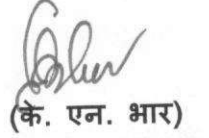 (के. एन. भार)